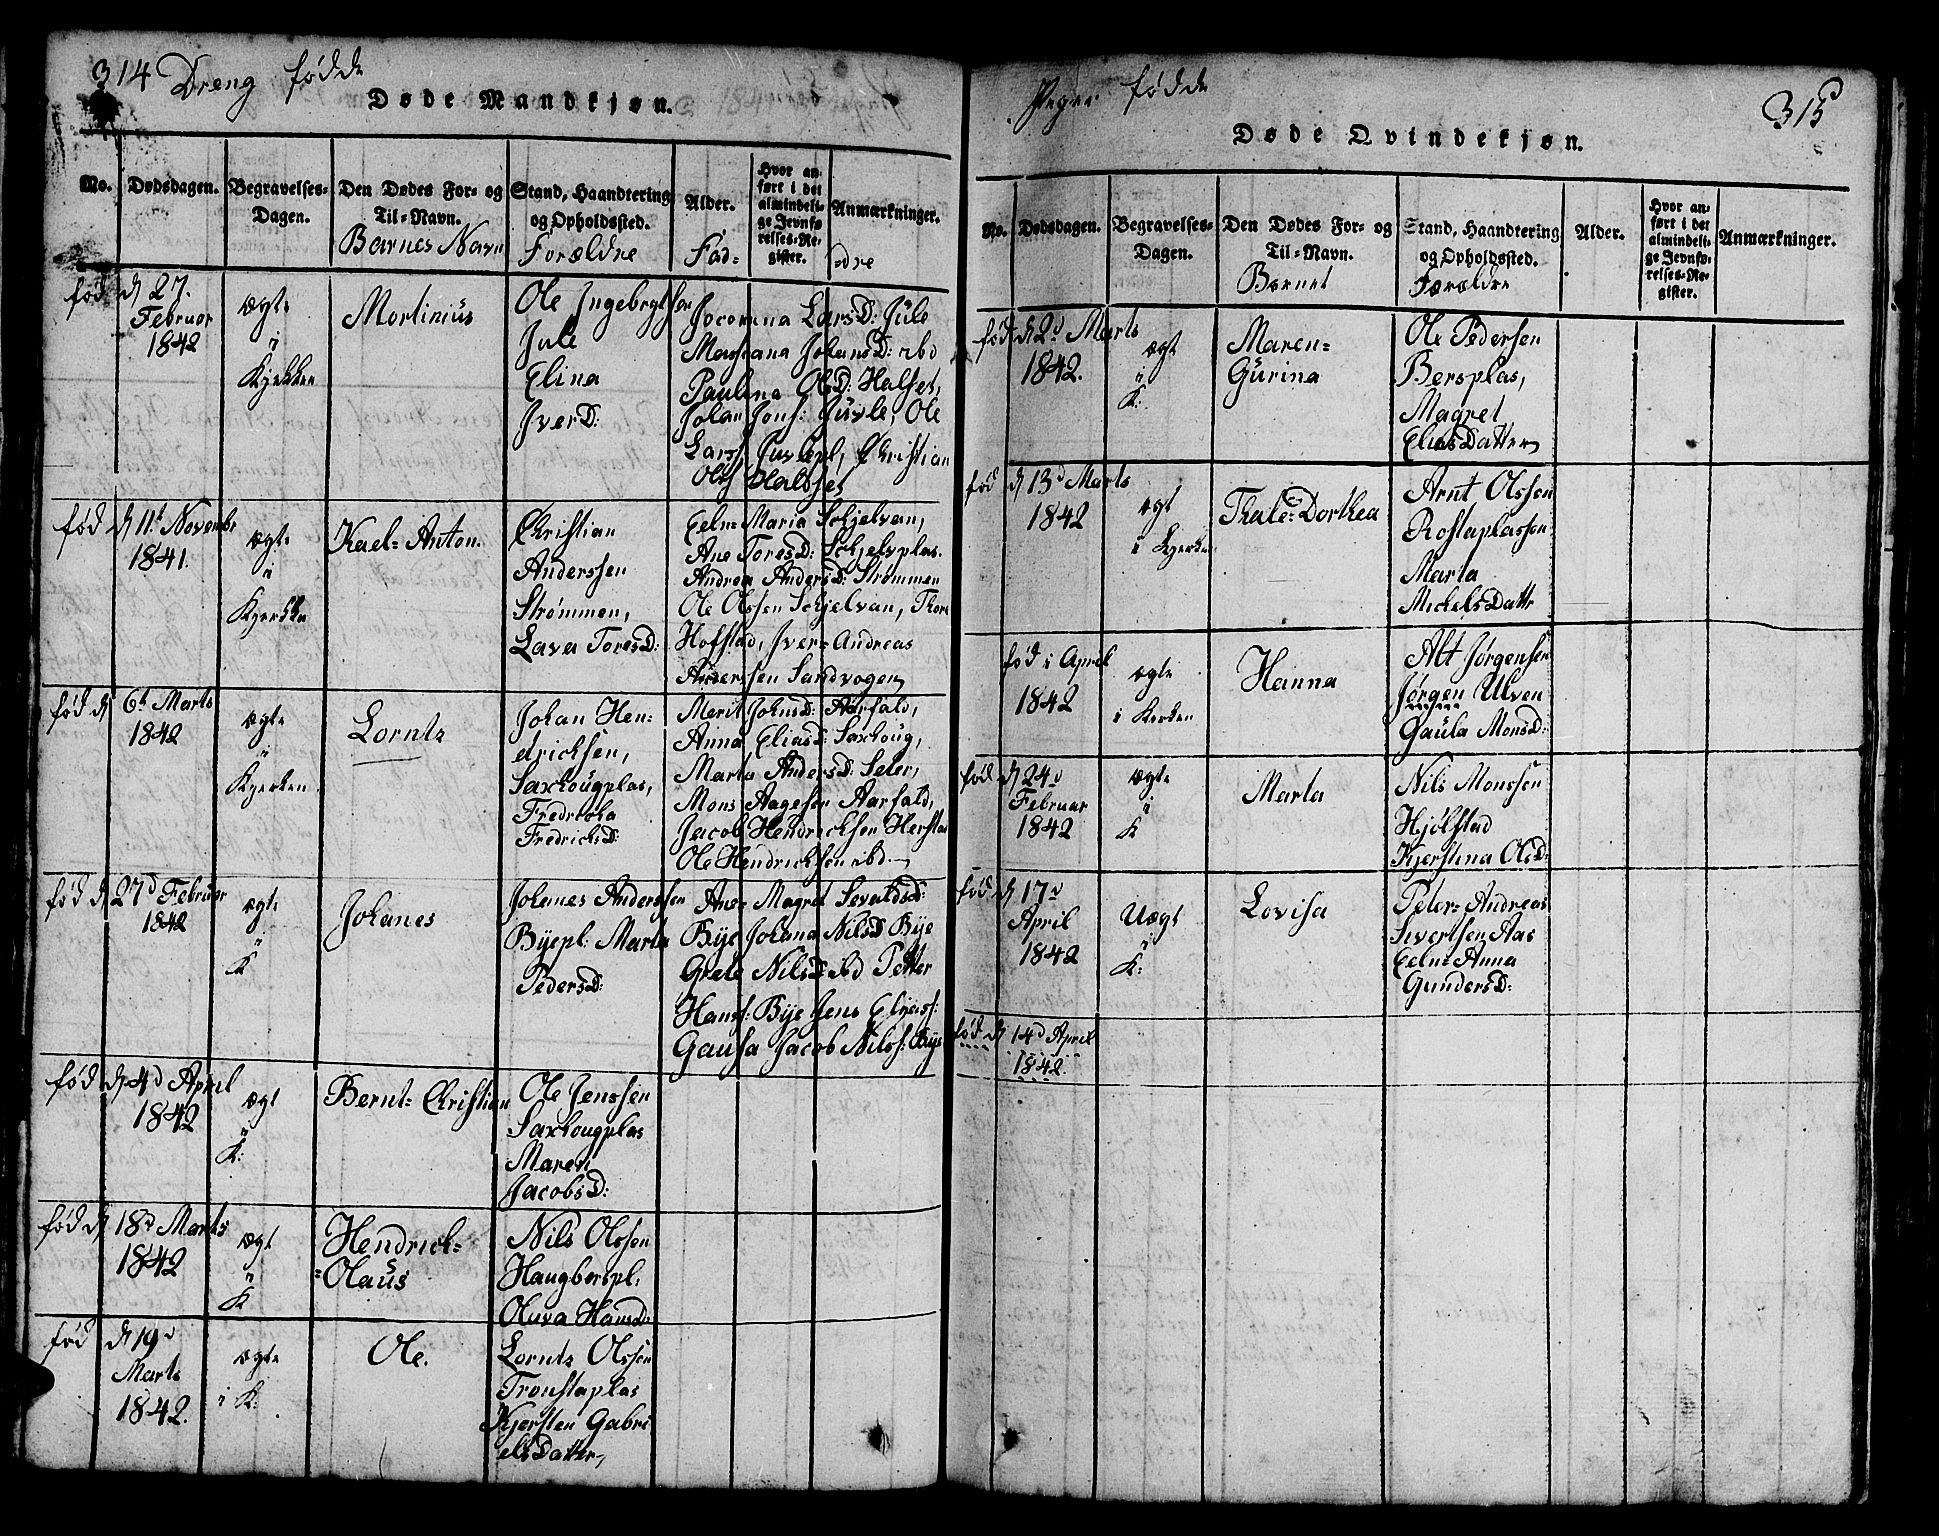 314 Dreng fødde
Døde Mandkjøn.
No.
Dødsdagen.
Begravelses-
Dagen.
Den Dødes For- og
Til-Navn.
Barnes Navn
Stand, Haandtering
og Opholdssted.
Forældre
Alder.
Fad-
Hvor an-
ført i det
almindeli-
ge Jevnfø-
relses-Re-
gister.
Anmærkninger.
dre
fød d 27.
Februar
1842
ægte
i
Kjerkken
Mortinius
Ole Ingebrgtsen
Jule
Elina
IverD:
Jocomina LarsD: Jule
Massiana JohansD: ibd
Paulina OlsD: Halset,
Johan Jons: Juvle, Ole
Larss Juvlepl, Christian
Olss Halbset
fød d 11t Novembr
1841.
ægte
i
Kjerkken
Kael= Anton.
Christian
Anderssen
Strømmen,
Lava ToresD:
Eeln= Maria Schjelvan,
Ane ToresD: Schjelvplas.
Andrea AndersD: Strømmen
Ole Olssen Schjelvan, Thore
Hofstad, Iver= Andreas
Anderssen Sandvogen
fød d 6t Marts
1842
ægte
i
Kjerken
Lornts
Johan Hen=
drichsen,
Saxhougplas,
Fredricha
FredrichsD:
Merit JohnsD: Aarfald,
Anna EliasD: Saxhoug,
Marta AndersD: Seter,
Mons Aagesen Aarfald,
Jacob Hendrichsen Herstad
Ole Hendrichsen ibd
fød d 27d Februar
1842
ægte
i
K
Johanes
Johanes Anderssen
Byepl: Marta
PedersD:
Ane= Magret SevaldsD:
Bye Johana NilsD Bye
Grete NilsD ibd Petter
Hanss: Bye Jens Elyass:
Gausa Jacob Nilss: Bye
fød d 4d April
1842
ægt
i
K:
Bernt= Christian
Ole Jenssen
Saxhougplas
Maren
JacobsD:
fød d 18d Marts
1842
ægt
i
K
Hendrick=
=Olaus
Nils Olssen
Haugberspl:
Oluva HansD:
fød d 19d
Marts
1842.
ægte
i K:
Ole.
Lornts Olssen
Tronstaplas
Kjersten Gabri
elsDatter,
Piger fødde
315
Døde Qvindekjøn.
No.
Dødsdagen.
Begravelses-
Dagen.
Den Dødes For- og
Til-Navn.
Barnet
Stand, Haandtering
og Opholdsted.
Forældre
Alder.
Hvor an-
ført i det
almindeli-
ge Jevnfø-
relses-Re-
gister.
Anmærkninger.
fød d 2d Marts
1842.
ægt
i
K:
Maren=
Gurina
Ole Pedersen
Bersplas,
Magret
EliasDatter
fød d 13d Marts
1842
ægt
i Kjerken
Thale= Dorthea
Arnt Olssen
Rostaplassen
Marta
MichelsDattr
fød i April
1842
ægte
i Kerken
Hanna
Alt Jørgensen
Jørgen Ulven
Gaula MonsD:
fød d 24d
Februar
1842
ægte
i
K
Marta
Nils Monssen
Hjølstad
Kjerstina OlsD:
fød d 17d
April
1842
Uægt
i
K:
Lovisa
Peter= Andreas
Sivertsen Aas
Eeln= Anna
GundersD:
fød d 14d April
1842.